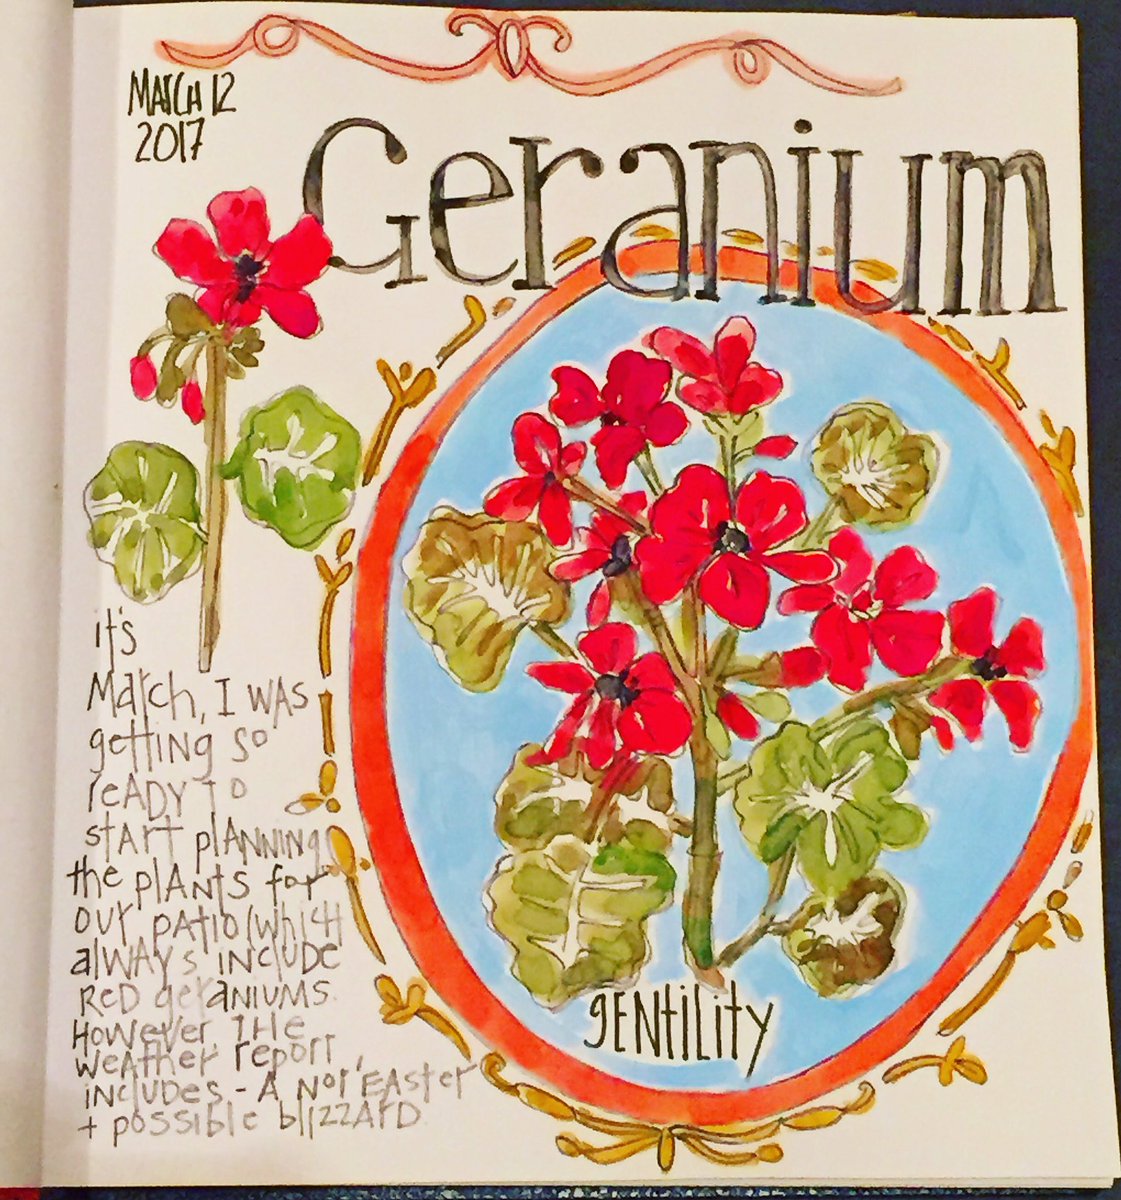 March 12
2017
Geranium
it's
March, I was
getting so
ready to
start planning
the plants for
our patio (which
always include
red geraniums.
However, the
weather report,
includes - a nor'easter
+ possible blizzard
gentility